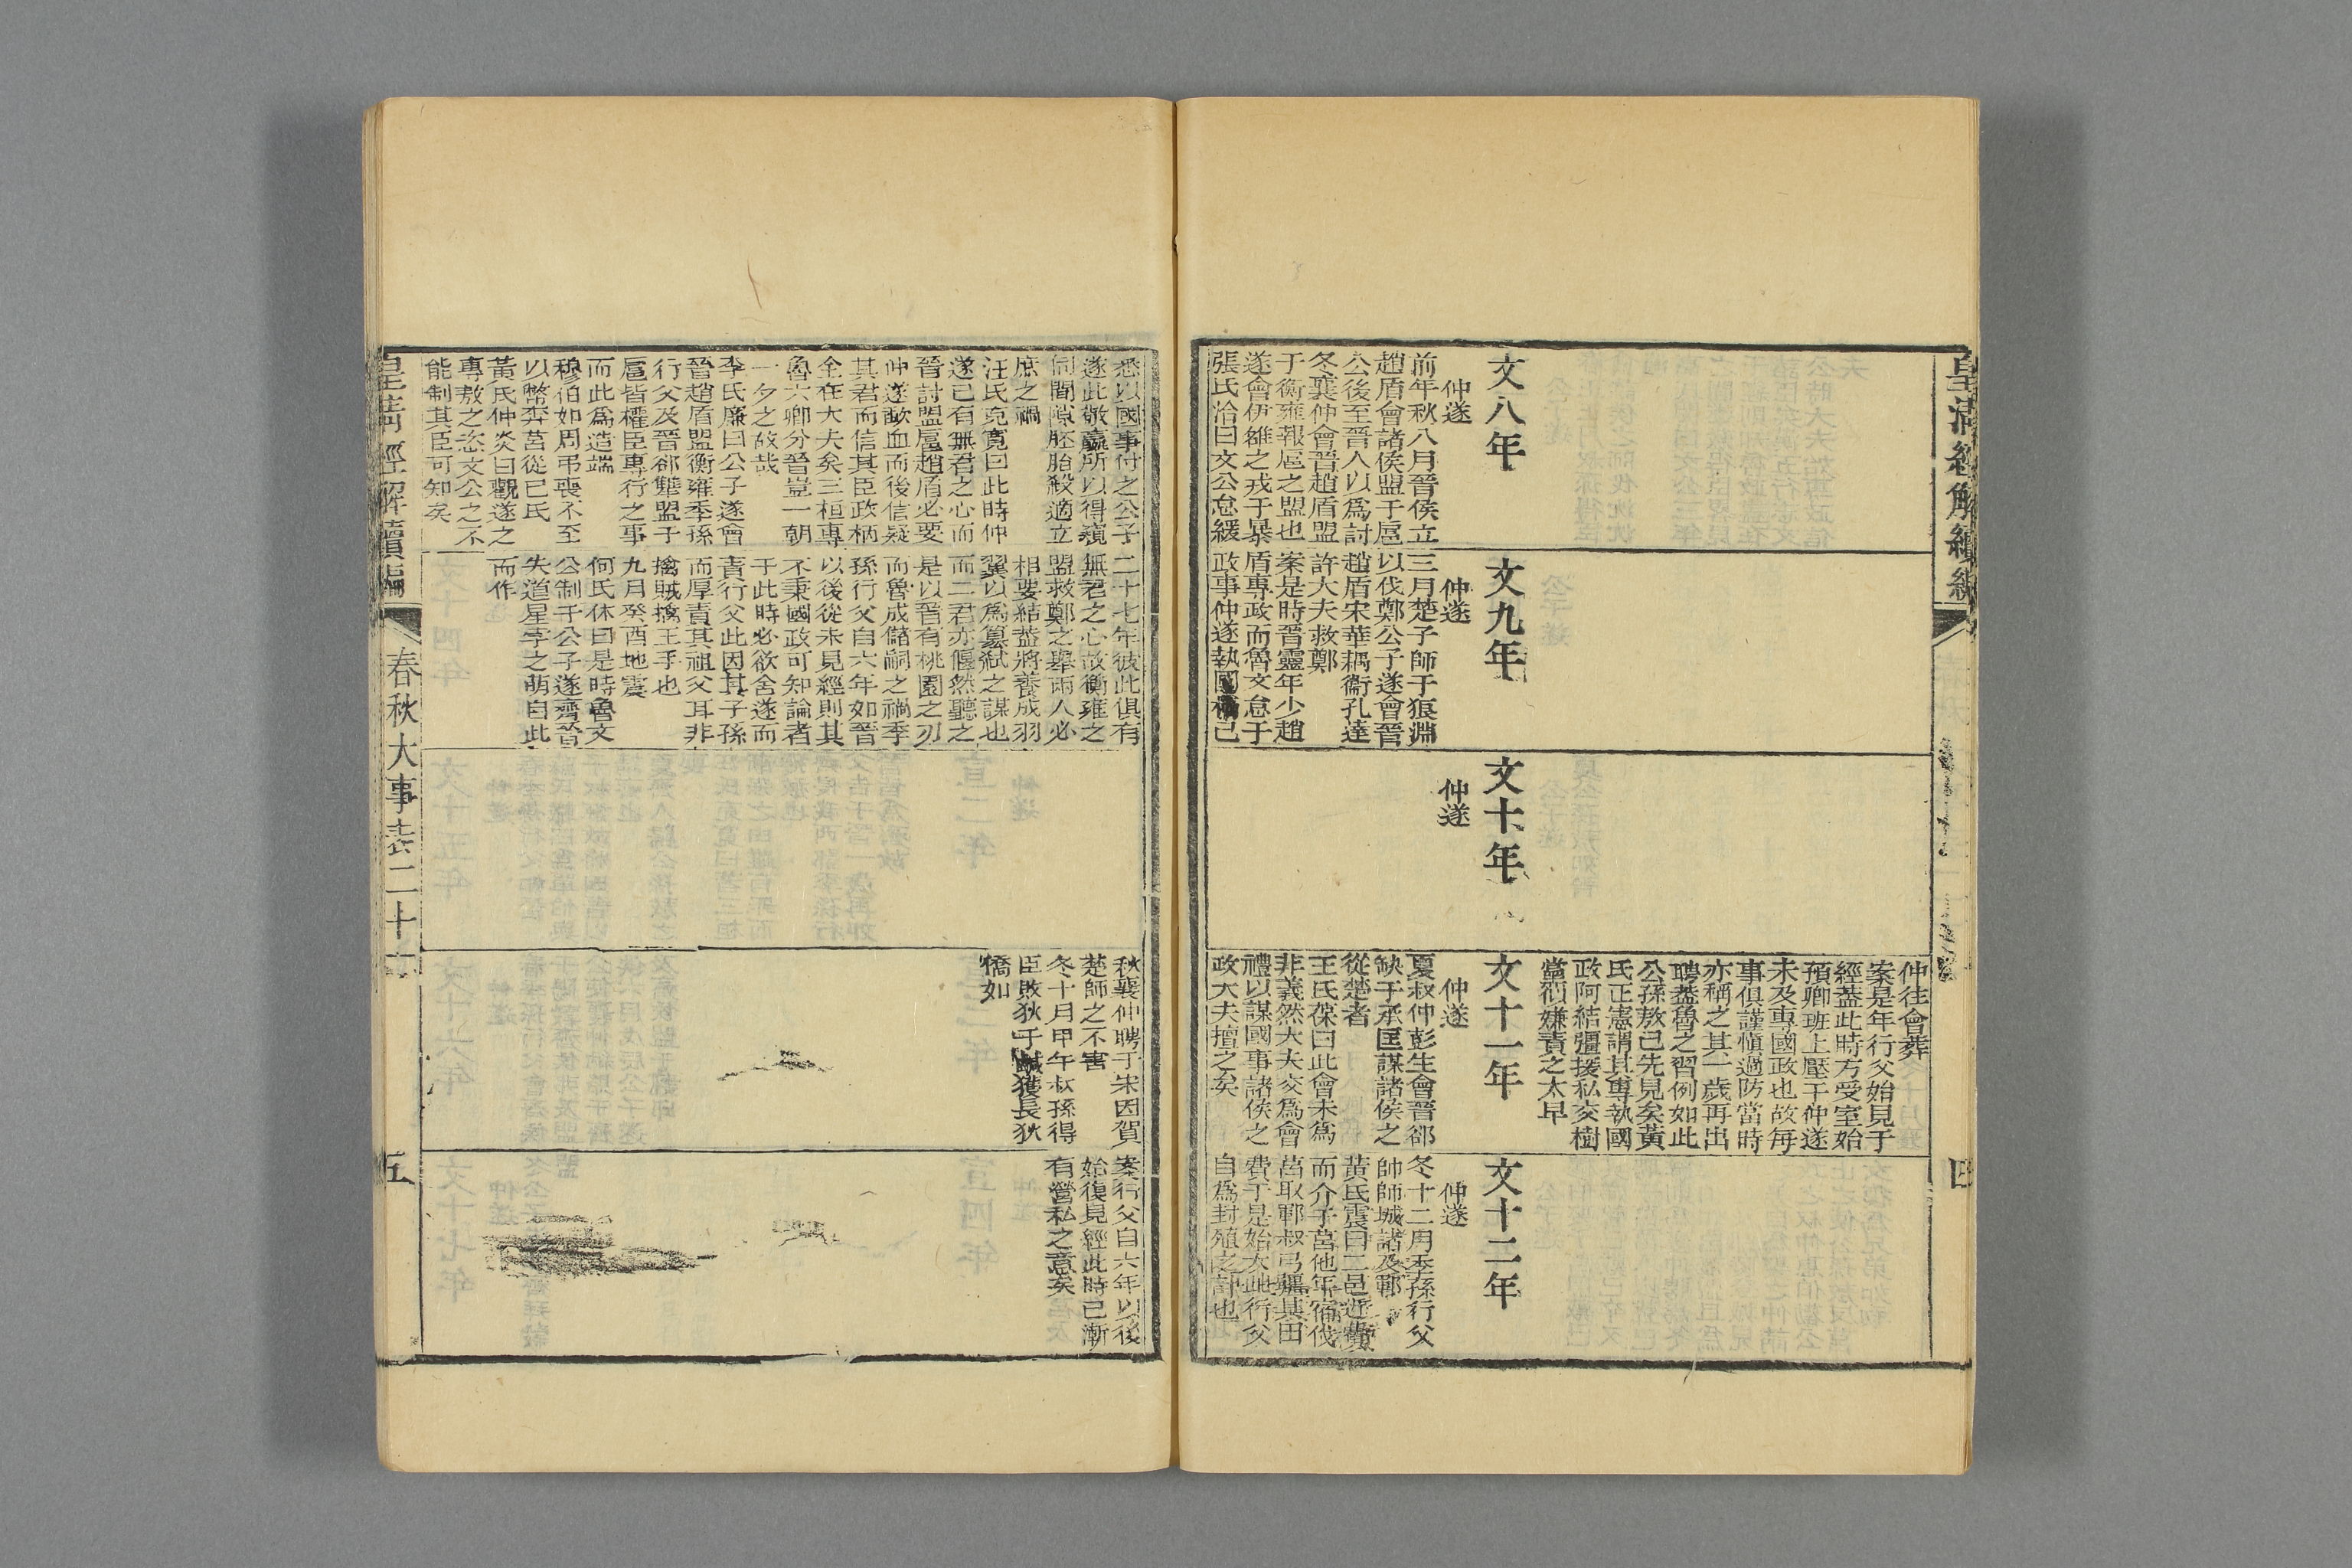 皇清經解續編
仲往會葬
案是年行父始見于
經蓋此時方受室始
預卿班上壓于仲遂
未及專國政也故每
事俱謹愼過防當時
亦稱之其一歲再出
聘蓋魯之習例如此
公孫敖已先見矣黃
氏正憲謂其專執國
政阿結彊援私交樹
黨徇嫌責之太早
四
文八年
仲遂
前年秋八月晉侯立
趙盾會諸侯盟于扈
公後至晉人以爲討
冬襄仲會晉趙盾盟
于衡雍報扈之盟也
遂會伊雒之戎于暴
張氏洽曰文公怠緩
文九年
仲遂
三月楚子師于狼淵
以伐鄭公子遂會晉
趙盾宋華耦衞孔達
許大夫救鄭
案是時晉靈年少趙
盾專政而魯文怠于
政事仲遂執國權已
文十年
仲遂
文十一年
仲遂
夏叔仲彭生會晉郤
缺于承匡謀諸侯之
從楚者
王氏葆曰此會未爲
非義然大夫交爲會
禮以謀國事諸侯之
政大夫擅之矣
文十二年
仲遂
冬十二月季孫行父
帥師城諸及鄆
黃氏震曰二邑近費
而介于莒他年宿伐
莒取鄆叔弓疆其田
費于是始大此行父
自爲封殖之計也
悉以國事付之公子
遂此敬嬴所以得窺
伺間隙胚胎殺適立
庶之禍
汪氏克寬曰此時仲
遂已有無君之心而
晉討盟扈趙盾必要
仲遂歃血而後信疑
其君而信其臣政柄
全在大夫矣三桓專
魯六卿分晉豈一朝
一夕之故哉
李氏廉曰公子遂會
晉趙盾盟衡雍季孫
行父及晉郤犨盟于
扈皆權臣專行之事
而此爲造端
穆伯如周弔喪不至
以幣奔莒從己氏
黃氏仲炎曰觀遂之
專敖之恣文公之不
能制其臣可知矣
二十七年彼此俱有
無君之心故衡雍之
盟救鄭之舉兩人必
相要結蓋將養成羽
翼以爲篡弑之謀也
而二君亦偃然聽之
是以晉有桃園之刃
而魯成儲嗣之禍季
孫行父自六年如晉
以後從未見經則其
不秉國政可知論者
于此時必欲舍遂而
責行父此因其子孫
而厚責其祖父耳非
擒賊擒王手也
九月癸酉地震
何氏休曰是時魯文
公制于公子遂齊晉
失道星孛之萌自此
而作
秋襄仲聘于宋因賀
楚師之不害
冬十月甲午叔孫得
臣敗狄于鹹獲長狄
僑如
案行父自六年以後
始復見經此時已漸
有營私之意矣
皇清經解續編
春秋大事表二十一
五